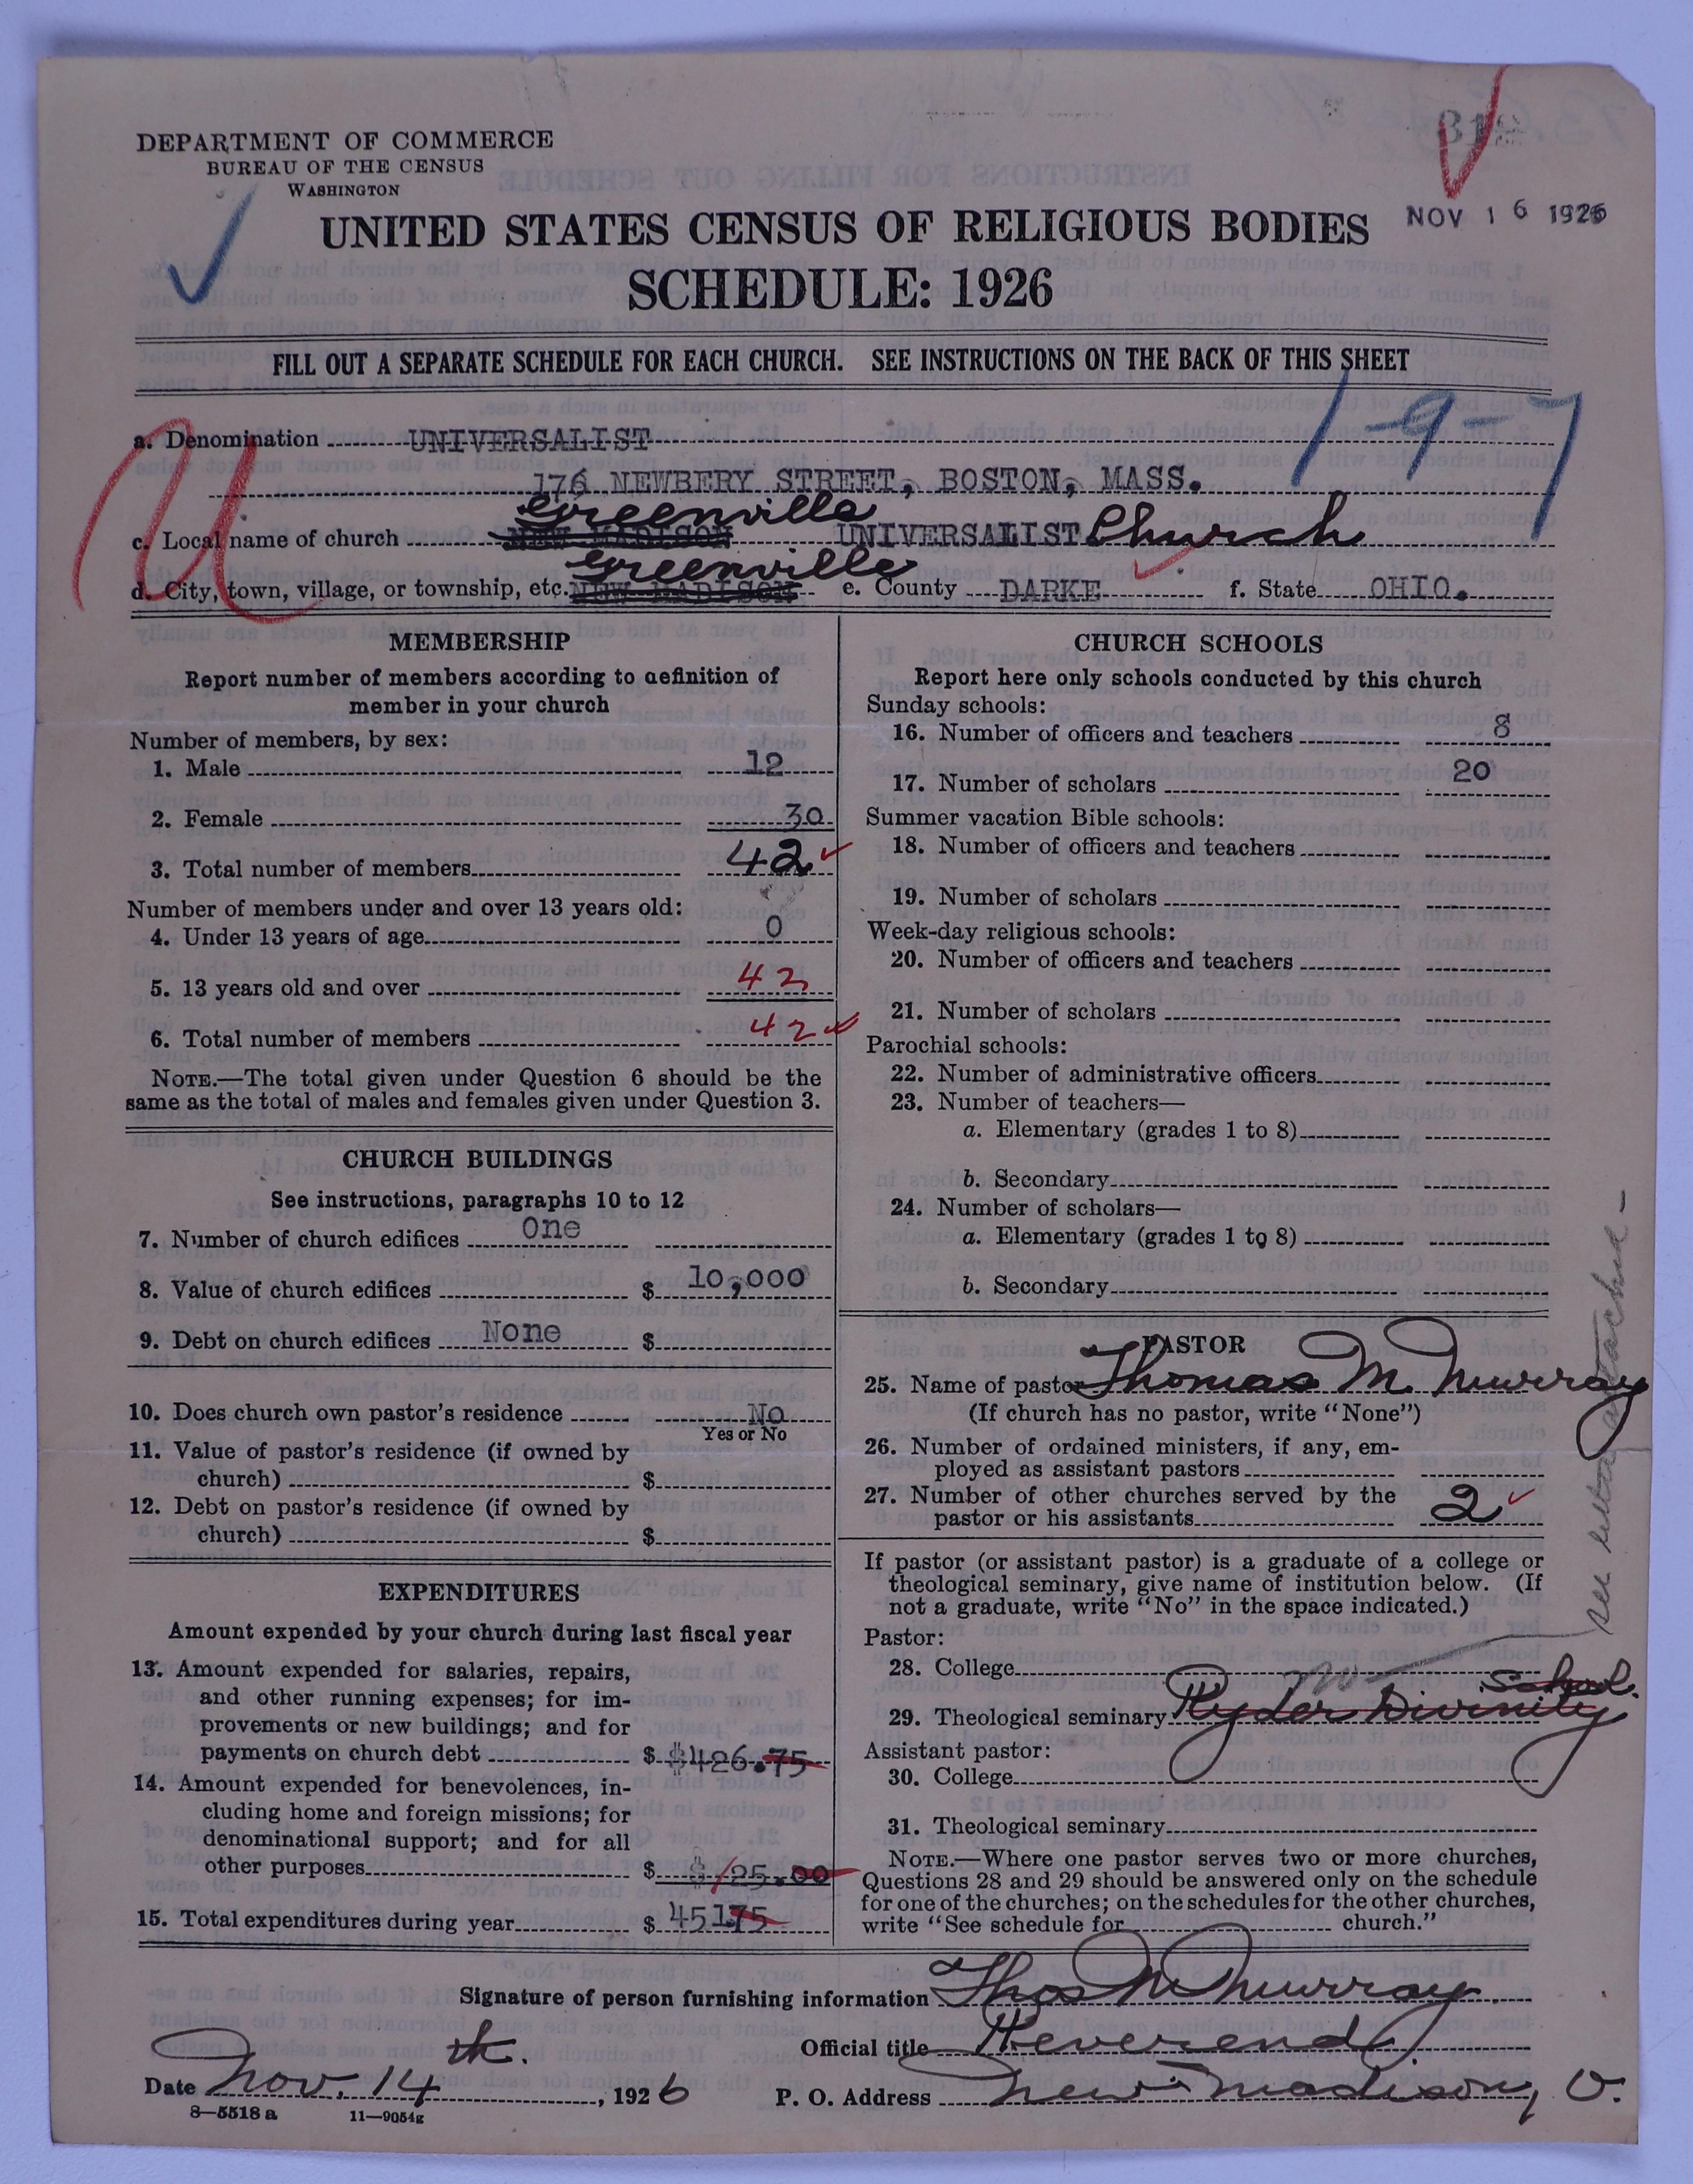 DEPARTMENT OF COMMERCE
BUREAU OF THE CENSUS
WASHINGTON
NOV 16 1926
UNITED STATES CENSUS OF RELIGIOUS BODIES
SCHEDULE: 1926
FILL OUT A SEPARATE SCHEDULE FOR EACH CHURCH. SEE INSTRUCTIONS ON THE BACK OF THIS SHEET
1-9-7
U
a. Denomination UNIVERSALIST
176 NEWBERY STREET, BOSTON, MASS.
Greenville
c. Local name of church NEW MADISON UNIVERSALIST Church
Greenville
d. City, town, village, or township, etc. NEW MADISON e. County DARKE f. State OHIO.
MEMBERSHIP
Report number of members according to definition of
member in your church
Number of members, by sex:
1. Male 12
2. Female 30
3. Total number of members 42
Number of members under and over 13 years old:
4. Under 13 years of age 0
5. 13 years old and over 42
6. Total number of members 42
NOTE.—The total given under Question 6 should be the
same as the total of males and females given under Question 3.
CHURCH BUILDINGS
See instructions, paragraphs 10 to 12
7. Number of church edifices One
8. Value of church edifices $ 10,000
9. Debt on church edifices None $
10. Does church own pastor's residence No
Yes or No
11. Value of pastor's residence (if owned by
church) $
12. Debt on pastor's residence (if owned by
church) $
EXPENDITURES
Amount expended by your church during last fiscal year
13. Amount expended for salaries, repairs,
and other running expenses; for im-
provements or new buildings; and for
payments on church debt $ $426.75
14. Amount expended for benevolences, in-
cluding home and foreign missions; for
denominational support; and for all
other purposes $ $25.00
15. Total expenditures during year $ 45175
CHURCH SCHOOLS
Report here only schools conducted by this church
Sunday schools:
16. Number of officers and teachers 8
17. Number of scholars 20
Summer vacation Bible schools:
18. Number of officers and teachers
19. Number of scholars
Week-day religious schools:
20. Number of officers and teachers
21. Number of scholars
Parochial schools:
22. Number of administrative officers
23. Number of teachers—
a. Elementary (grades 1 to 8)
b. Secondary
24. Number of scholars—
a. Elementary (grades 1 to 8)
b. Secondary
PASTOR
25. Name of pastor Thomas M. Murray
(If church has no pastor, write "None")
26. Number of ordained ministers, if any, em-
ployed as assistant pastors
27. Number of other churches served by the
pastor or his assistants 2
If pastor (or assistant pastor) is a graduate of a college or
theological seminary, give name of institution below. (If
not a graduate, write "No" in the space indicated.)
Pastor:
28. College
School.
29. Theological seminary Ryder Divinity
Assistant pastor:
30. College
31. Theological seminary
NOTE.—Where one pastor serves two or more churches,
Questions 28 and 29 should be answered only on the schedule
for one of the churches; on the schedules for the other churches,
write "See schedule for church."
see letter attached -
Signature of person furnishing information Thos M Murray
Official title Reverend
Date Nov. 14 th. , 1926 P. O. Address New Madison, O.
8—5518 a 11—9054g